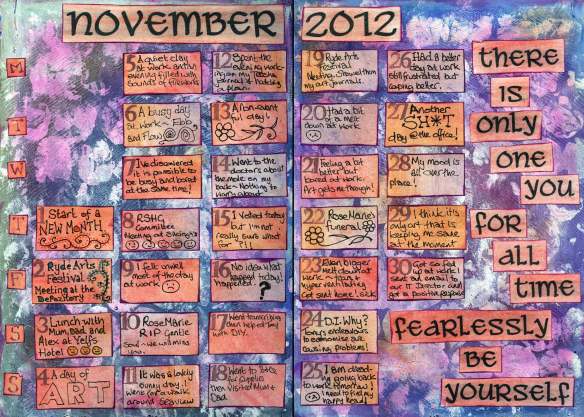 NOVEMBER 2012
M
T
W
T
F
S
S
1 Start of a
NEW MONTH.
2 Ryde Arts
Festival
Meeting at the
Depository
3 Lunch with
Mum, Dad and
Alex at Yelfs
Hotel
4 A day of
ART
5 A quiet day
at work and an
evening filled with
sounds of fireworks
6 A busy day
at work - Ebb
and Flow
7 I've discovered
it is possible to
be busy and bored
at the same time!
8 RSHG
Committee
Meeting
9 I felt unwell
most of the day
at work
10 RoseMarie
R.I.P Gentle
Soul - we will miss
you.
11 It was a lovely
sunny day. I
went for a walk
around Seaview
12 Spent the
evening
a plan.
13 A non-event
ful day!
14 Went to the
doctors about
the mole on my
back - Nothing to
worry about
15 I Voted today
but I'm not
really sure what
for?!!
16 No idea what
happened today!
happened.
?
17
with D.I.Y.
18 Went to
for supplies
then visited Mum &
Dad
19 Ryde Arts
Festival
Meeting. Showed them
my art journals.
20 Had a bit
of a melt
down at work
21 Feeling a bit
better but
bored at work.
Art gets me through!
22 RoseMarie's
funeral
23 Even bigger
melt down at
work - tears &
hyperventilating
Got sent home sick
24 D.I.Why?
Today's endeavours
to economise are
causing problems!
25 I am dread-
ing going back
to work tomorrow
I need to find my
happy head!
26 Had a better
day at work
still frustrated but
coping better...
27 Another
SH*T
day @ the office!
28 My mood is
all over the
place!
29 I think it's
only art that is
keeping me sane
at the moment
30 Got so fed
up at work I
sent an email to
our IT Director and
got a positive response
there
IS
only
one
you
for
all
time
fearlessly
BE
YOURSELF